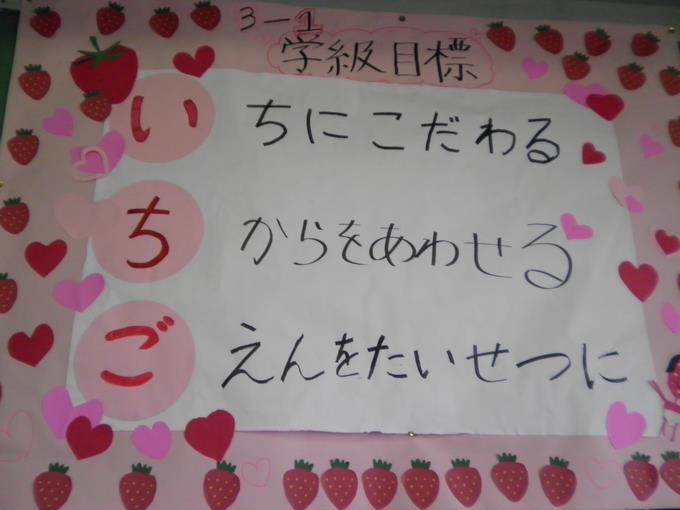 3-1
学級目標
いちにこだわる
ちからをあわせる
ごえんをたいせつに